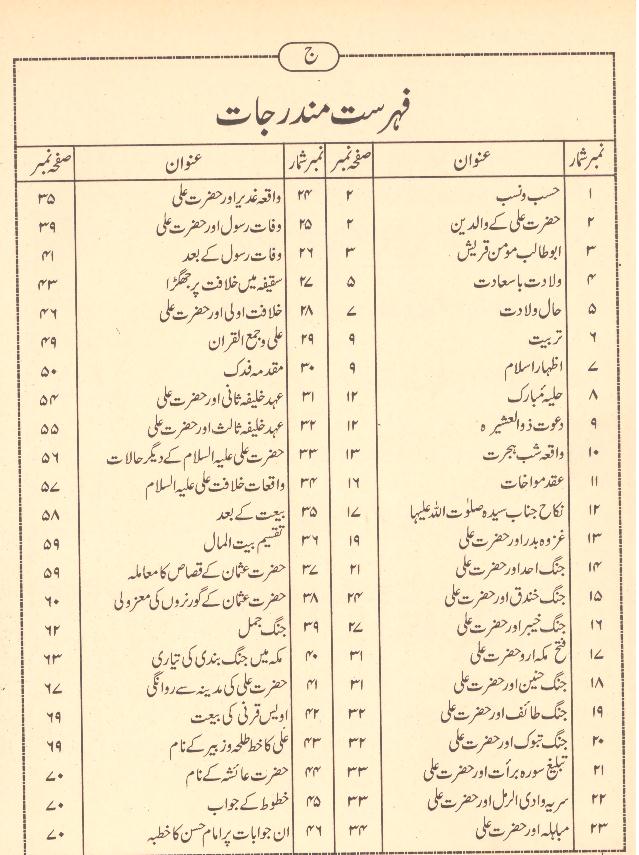 ج
فہرست مندرجات
نمبر شمار عنوان صفحہ نمبر نمبر شمار عنوان صفحہ نمبر
۱ حسب ونسب ۲ ۲۴ واقعہ غدیر اور حضرت علی ۳۵
۲ حضرت علی کے والدین ۲ ۲۵ وفات رسول اور حضرت علی ۳۹
۳ ابو طالب مومن قریش ۳ ۲۶ وفات رسول کے بعد ۴۱
۴ ولادت باسعادت ۵ ۲۷ سقیفہ میں خلافت پر جھگڑا ۴۳
۵ حال ولادت ۷ ۲۸ خلافت اولی اور حضرت علی ۴۶
۶ تربیت ۹ ۲۹ علی و جمع القران ۴۹
۷ اظہار اسلام ۹ ۳۰ مقدمہ فدک ۵۰
۸ حلیہ مبارک ۱۲ ۳۱ عہد خلیفہ ثانی اور حضرت علی ۵۴
۹ دعوت ذوالعشیر ہ ۱۲ ۳۲ عہد خلیفہ ثالث اور حضرت علی ۵۵
۱۰ واقعہ شب ہجرت ۱۳ ۳۳ حضرت علی علیہ السلام کے دیگر حالات ۵۶
۱۱ عقد مواخات ۱۶ ۳۴ واقعات خلافت علی علیہ السلام ۵۷
۱۲ نکاح جناب سیدہ صلوٰت اللہ علیہا ۱۷ ۳۵ بیعت کے بعد ۵۸
۱۳ غزوہ بدر اور حضرت علی ۱۹ ۳۶ تقسیم بیت المال ۵۹
۱۴ جنگ احد اور حضرت علی ۲۱ ۳۷ حضرت عثمان کے قصاص کا معاملہ ۵۹
۱۵ جنگ خندق اور حضرت علی ۲۴ ۳۸ حضرت عثمان کے گورنروں کی معزولی ۶۰
۱۶ جنگ خیبر اور حضرت علی ۲۷ ۳۹ جنگ جمل ۶۲
۱۷ فتح مکہ ارو حضرت علی ۳۱ ۴۰ مکہ میں جنگ بندی کی تیاری ۶۳
۱۸ جنگ حنین اور حضرت علی ۳۱ ۴۱ حضرت علی کی مدینہ سے روانگی ۶۷
۱۹ جنگ طائف اور حضرت علی ۳۲ ۴۲ اویس قرنی کی بیعت ۶۹
۲۰ جنگ تبوک اور حضرت علی ۳۲ ۴۳ علی کا خط طلحہ وزبیر کے نام ۶۹
۲۱ تبلیغ سورہ برأت اور حضرت علی ۳۳ ۴۴ حضرت عائشہ کے نام ۷۰
۲۲ سریہ وادی الرمل اور حضرت علی ۳۳ ۴۵ خطوط کے جواب ۷۰
۲۳ مباہلہ اور حضرت علی ۳۴ ۴۶ ان جوابات پر امام حسن کا خطبہ ۷۰